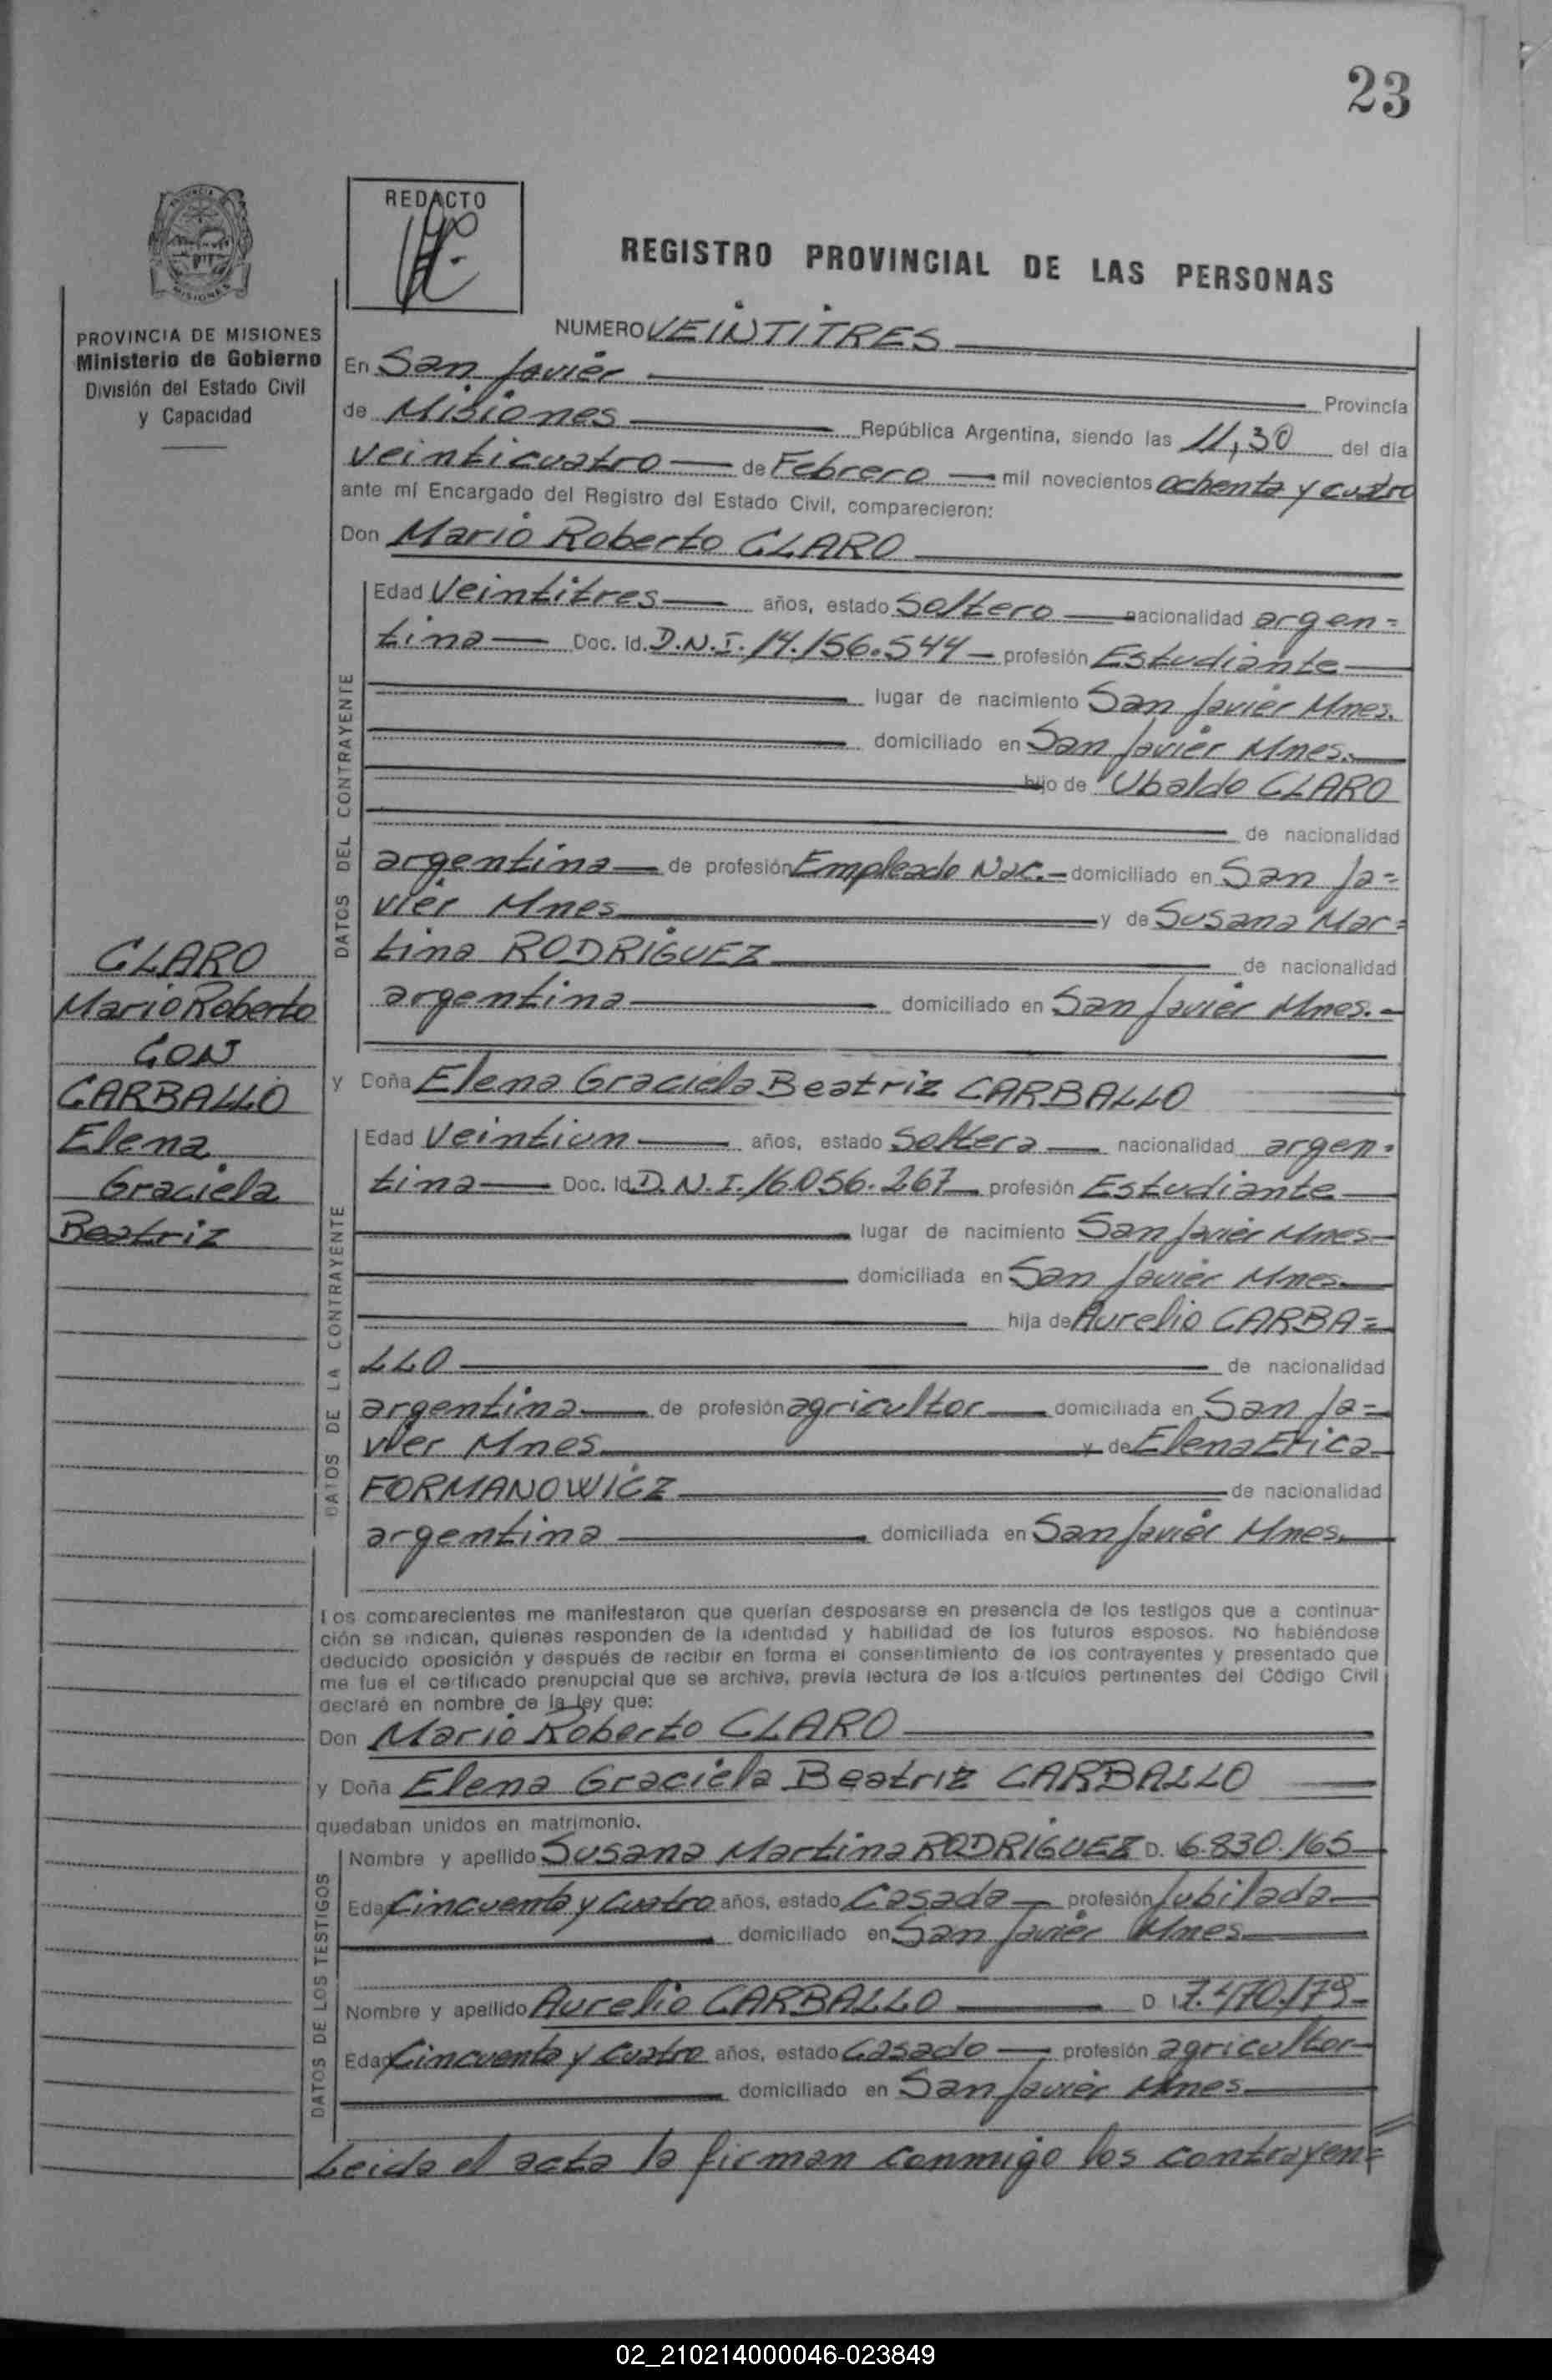 23
REDACTO
REGISTRO PROVINCIAL DE LAS PERSONAS
PROVINCIA DE MISIONES
Ministerio de Gobierno
División del Estado Civil
y Capacidad
NUMERO VEINTITRES
En San Javier Provincia
de Misiones República Argentina, siendo las 11,30 del día
veinticuatro de Febrero mil novecientos ochenta y cuatro
ante mí Encargado del Registro del Estado Civil, comparecieron:
Don Mario Roberto CLARO
DATOS DEL CONTRAYENTE
Edad Veintitres años, estado Soltero nacionalidad argen=
tina Doc. Id. D.N.I. 14.156.544 profesión Estudiante
lugar de nacimiento San Javier Mnes.
domiciliado en San Javier Mnes.
hijo de Ubaldo CLARO
de nacionalidad
argentina de profesión Empleado Nac. domiciliado en San Ja=
vier Mnes y de Susana Mar=
tina RODRIGUEZ de nacionalidad
argentina domiciliado en San Javier Mnes.
CLARO
Mario Roberto
CON
CARBALLO
Elena
Graciela
Beatriz
y Doña Elena Graciela Beatriz CARBALLO
DATOS DE LA CONTRAYENTE
Edad Veintiun años, estado Soltera nacionalidad argen=
tina Doc. Id. D.N.I. 16.056.267 profesión Estudiante
lugar de nacimiento San Javier Mnes
domiciliada en San Javier Mnes
hija de Aurelio CARBA=
LLO de nacionalidad
argentina de profesión agricultor domiciliada en San Ja=
vier Mnes y de Elena Erica
FORMANOWICZ de nacionalidad
argentina domiciliada en San Javier Mnes.
Los comparecientes me manifestaron que querían desposarse en presencia de los testigos que a continua-
ción se indican, quienes responden de la identidad y habilidad de los futuros esposos. No habiéndose
deducido oposición y después de recibir en forma el consentimiento de los contrayentes y presentado que
me fue el certificado prenupcial que se archiva, previa lectura de los artículos pertinentes del Código Civil
declaré en nombre de la ley que:
Don Mario Roberto CLARO
y Doña Elena Graciela Beatriz CARBALLO
quedaban unidos en matrimonio.
DATOS DE LOS TESTIGOS
Nombre y apellido Susana Martina RODRIGUEZ D. I. 6.830.165
Edad Cincuenta y cuatro años, estado Casada profesión Jubilada
domiciliado en San Javier Mnes
Nombre y apellido Aurelio CARBALLO D. I. 7.470.179
Edad Cincuenta y cuatro años, estado Casado profesión agricultor
domiciliado en San Javier Mnes
Leida el acta la firman conmigo los contrayen=
02_210214000046-023849